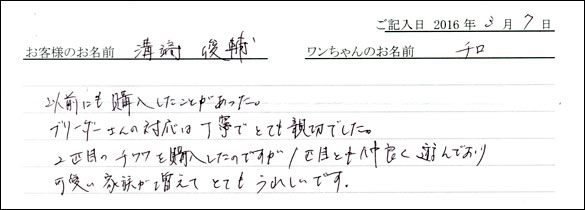 ご記入日 2016 年 3 月 7 日
お客様のお名前 溝端 俊輔 ワンちゃんのお名前 チロ
以前にも購入したことがあった。
ブリーダーさんの対応は丁寧でとても親切でした。
2匹目のチワワを購入したのですが1匹目とも仲良く遊んでおり
可愛い家族が増えてとてもうれしいです。